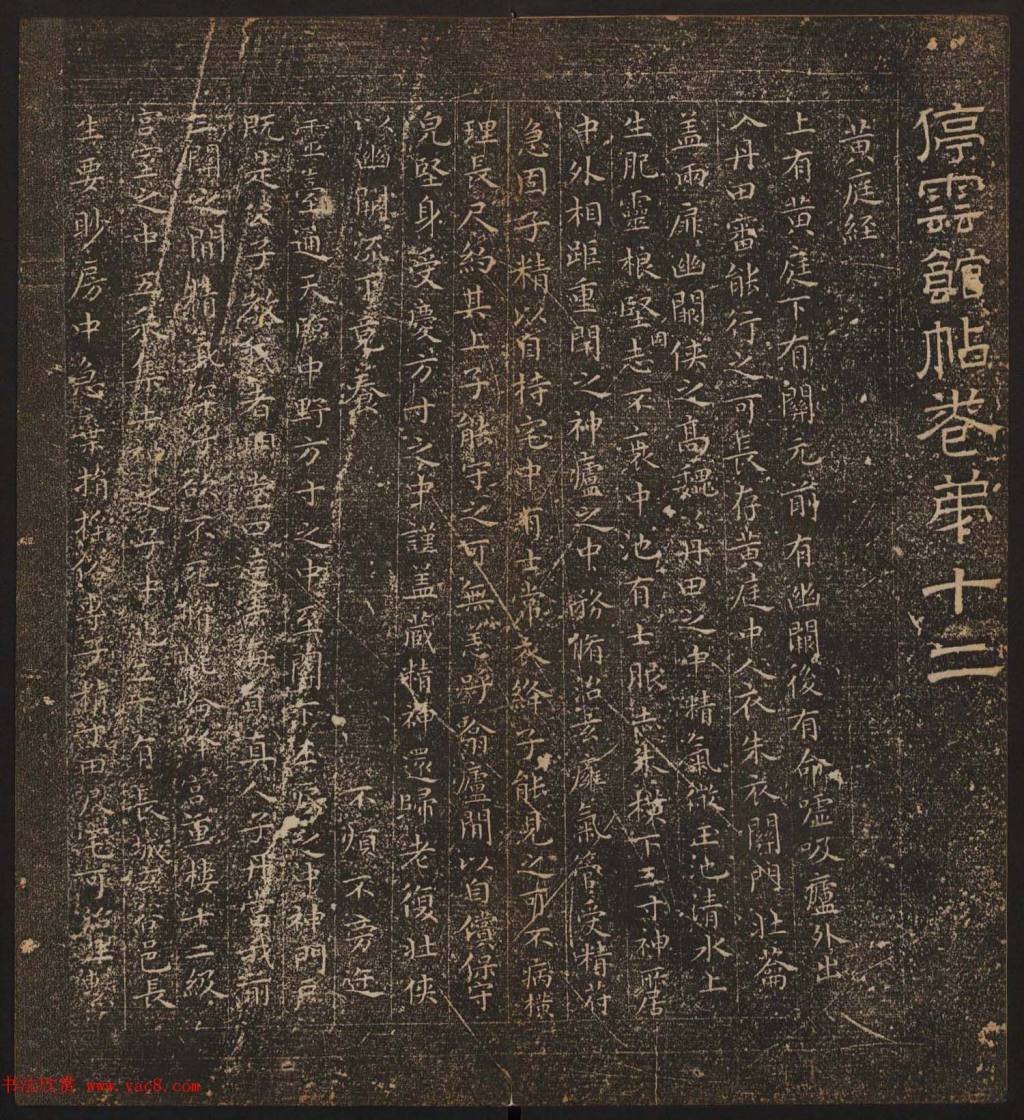 停雲館帖卷第十二
黃庭經
上有黃庭下有關元前有幽闕後有命噓吸廬外出
入丹田審能行之可長存黃庭中人衣朱衣關門壯蘥
蓋兩扉幽闕俠之高巍巍丹田之中精氣微玉池清水上
生肥靈根堅固志不衰中池有士服赤朱橫下三寸神所居
中外相距重閉之神廬之中務脩治玄廱氣管受精符
急固子精以自持宅中有士常衣絳子能見之可不病橫
理長尺約其上子能守之可無恙呼翕廬閒以自償保守
皃堅身受慶方寸之中謹蓋藏精神還歸老復壯俠
以幽闕流下竟養 不煩不旁迕
靈臺通天臨中野方寸之中至關下玉房之中神門戶
既是公子教我者明堂四達法海員真人子丹當我前
三關之閒精氣深子欲不死脩崐崘絳宮重樓十二級
宮室之中五采集赤神之子中池立下有長城玄谷邑長
生要眇房中急棄捐搖俗專子精寸田尺宅可治生繫
书法欣赏 www.yac8.com